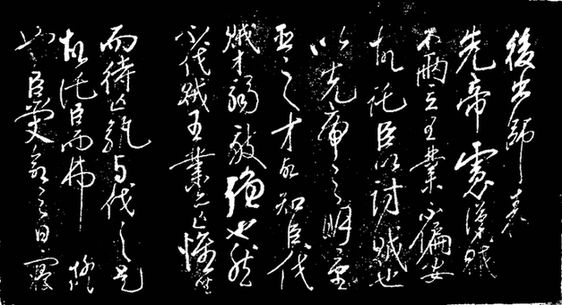 後出師表
先帝慮漢賊
不兩立王業不偏安
故託臣以討賊也
以先帝之明量
臣之才故知臣伐
賊才弱敵強也然
不伐賊王業亦亡惟坐
而待亡孰與伐之是
故託臣而弗疑
也臣受命之日寢